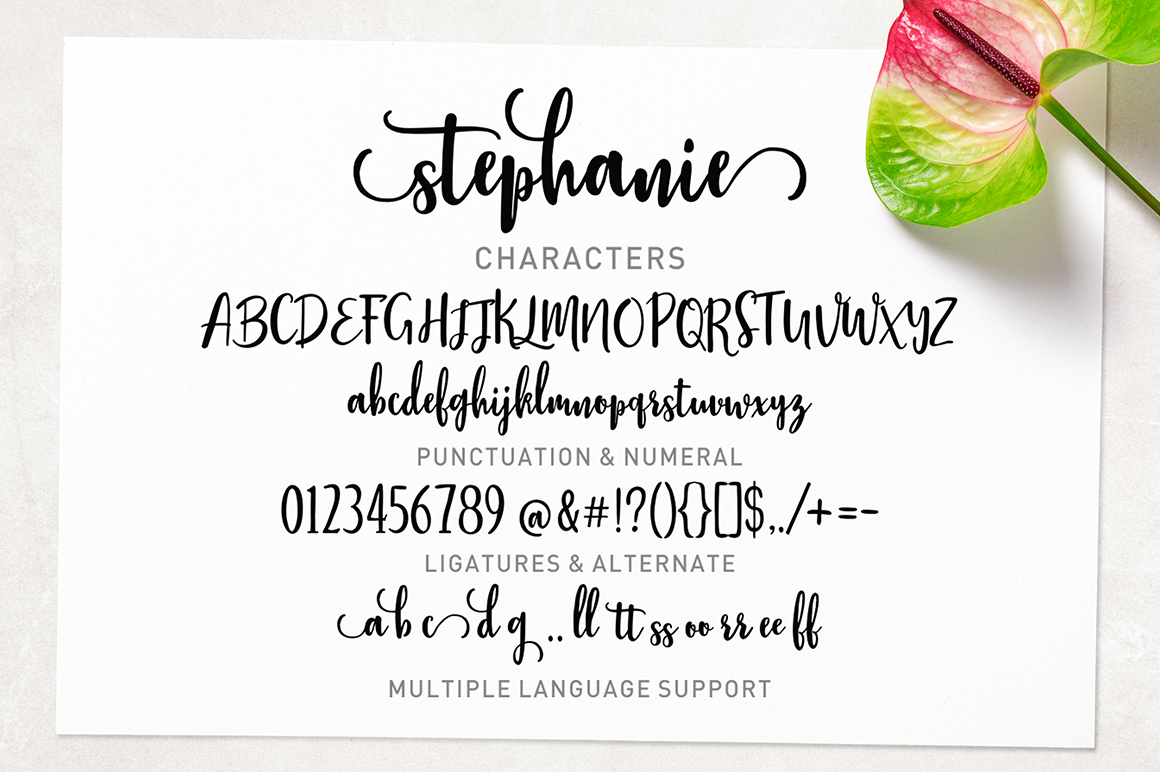 stephanie
CHARACTERS
ABCDEFGHIJKLMNOPQRSTUVWXYZ
abcdefghijklmnopqrstuvwxyz
PUNCTUATION & NUMERAL
0123456789 @&#!?(){}[]$,./+=-
LIGATURES & ALTERNATE
a b c d g .. ll tt ss oo rr ee ff
MULTIPLE LANGUAGE SUPPORT